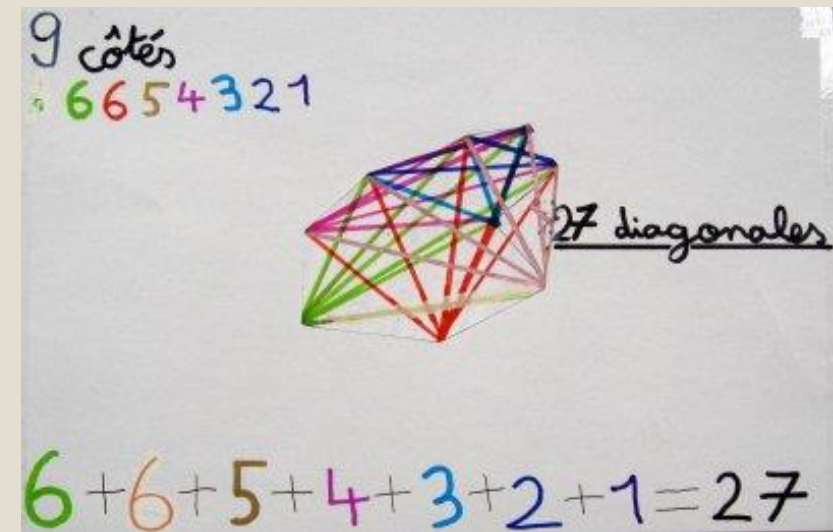 9 côtés
6 6 5 4 3 2 1
27 diagonales
6+6+5+4+3+2+1=27